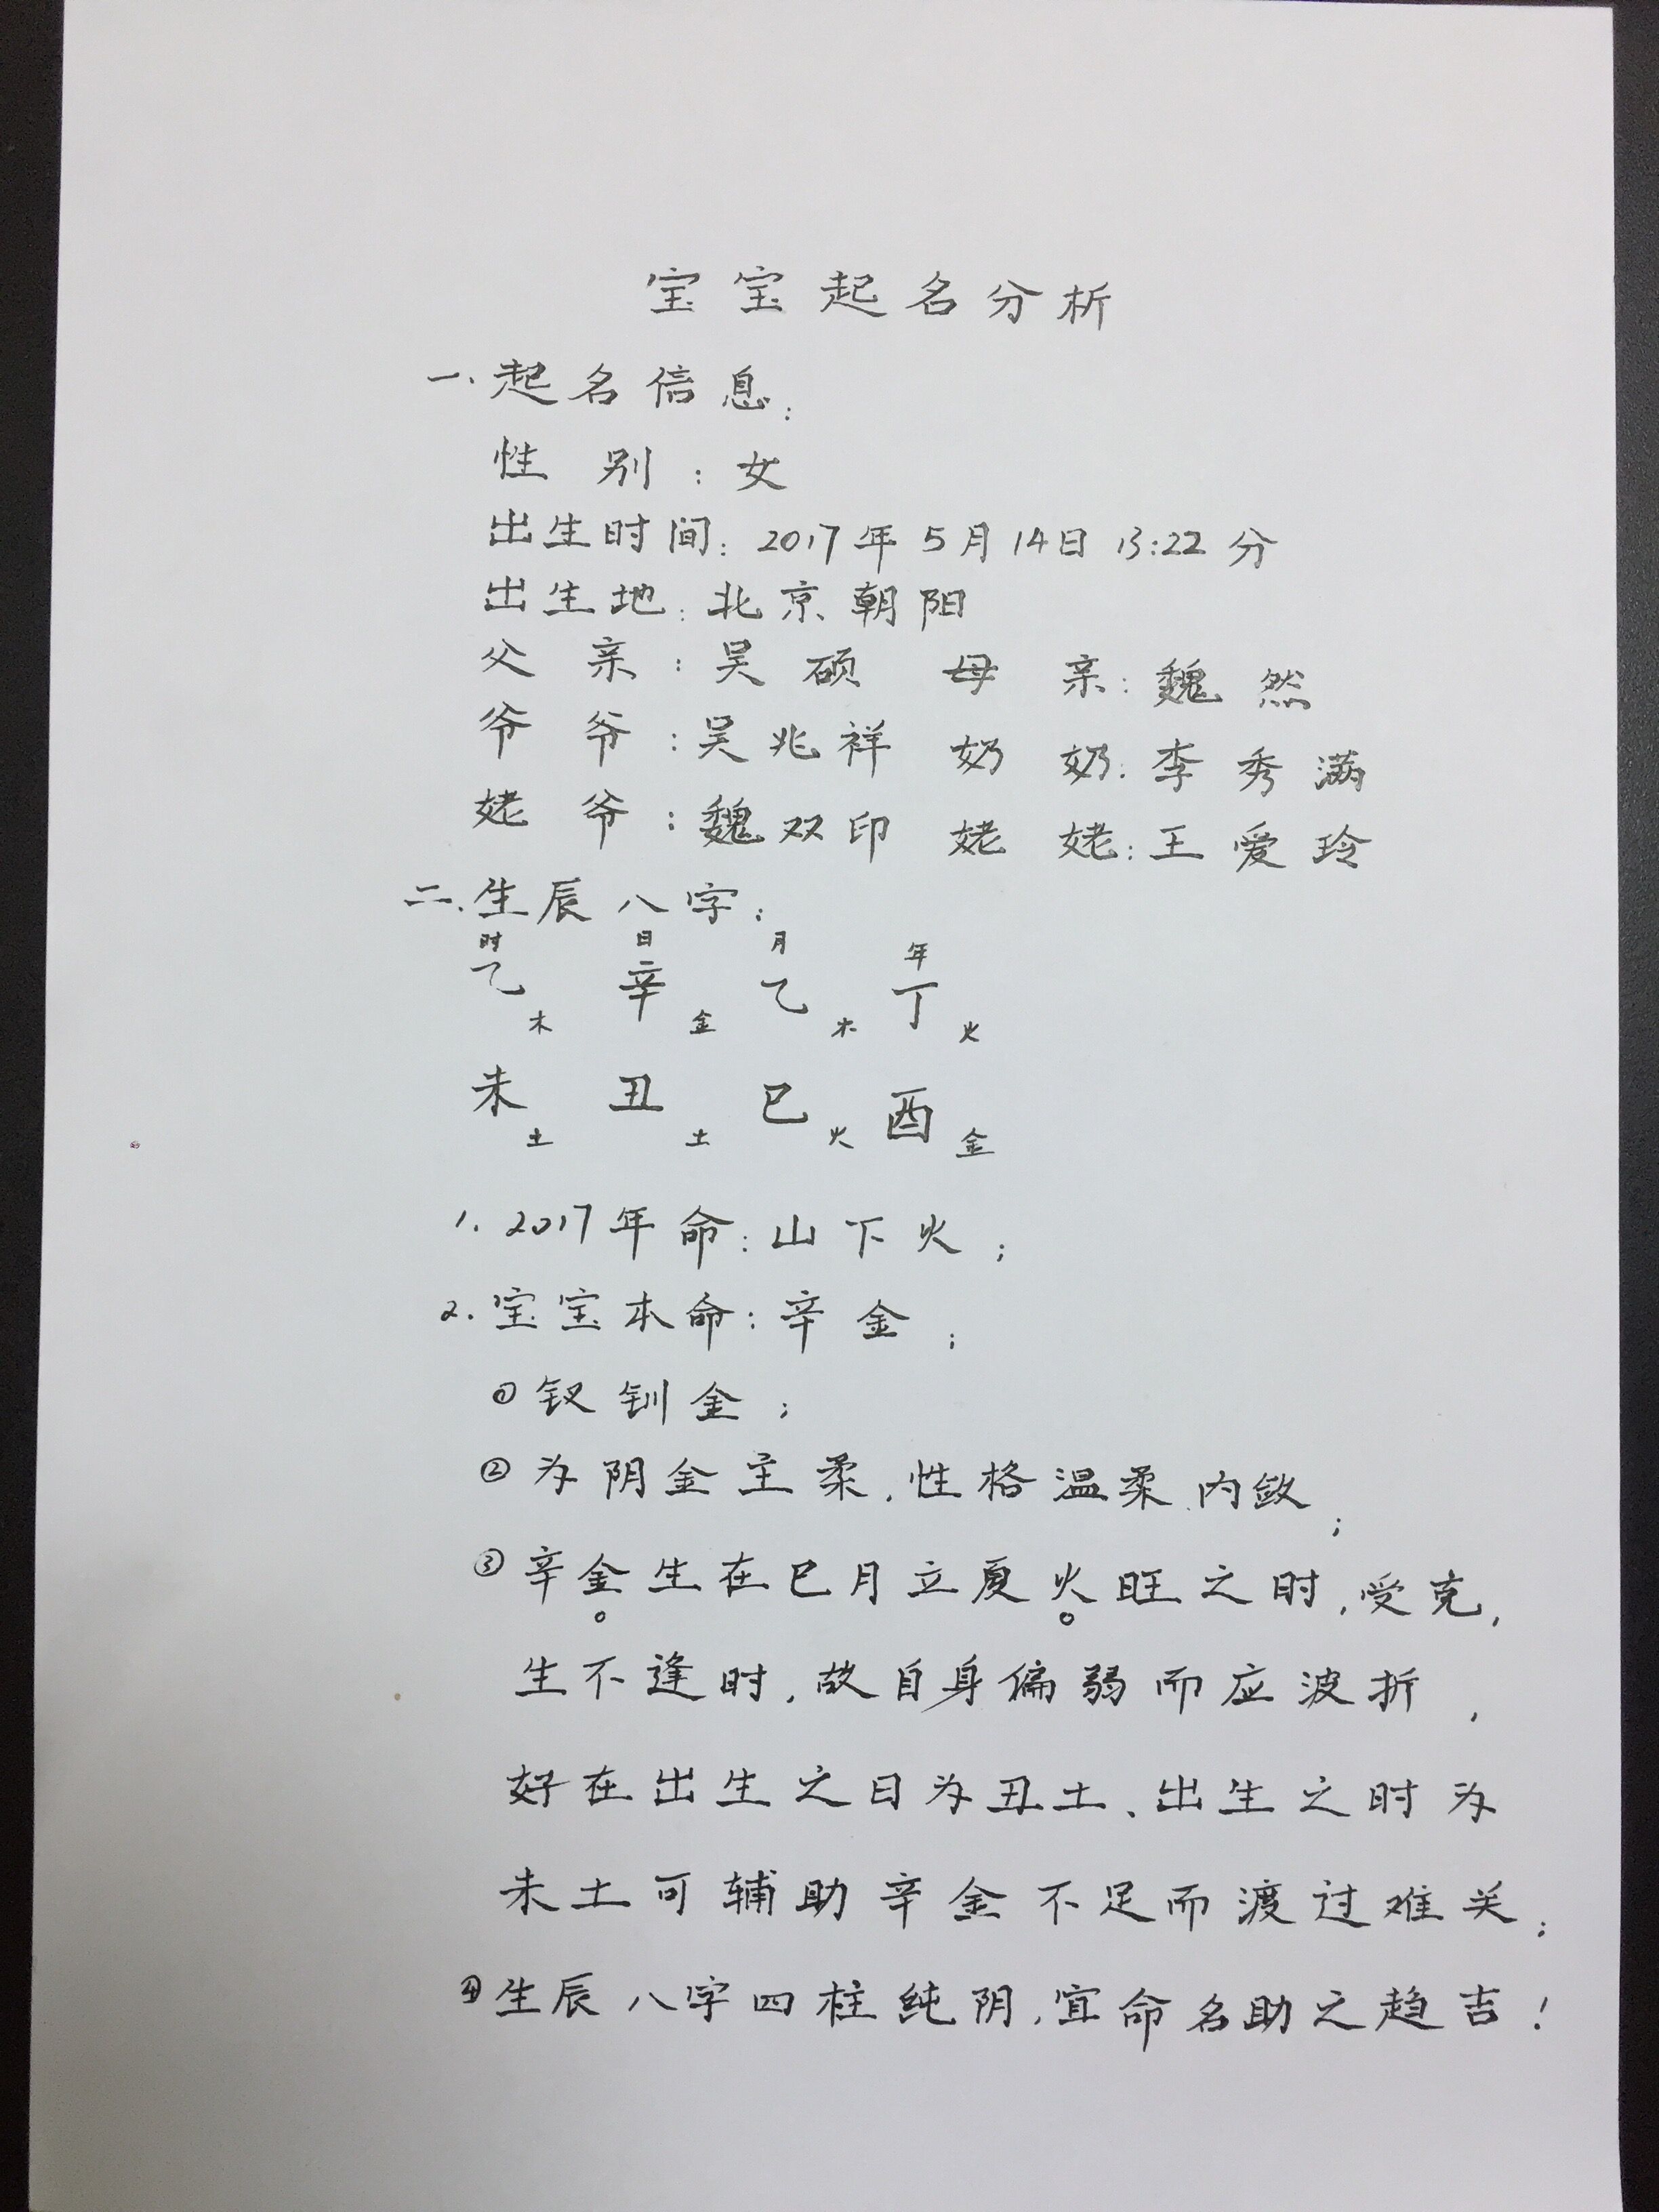 宝宝起名分析
一、起名信息:
性别:女
出生时间:2017年5月14日13:22分
出生地:北京朝阳
父亲:吴硕 母亲:魏然
爷爷:吴兆祥 奶奶:李秀满
姥爷:魏双印 姥姥:王爱玲
二、生辰八字:
时 日 月 年
乙木 辛金 乙木 丁火
未土 丑土 巳火 酉金
1. 2017年命:山下火;
2. 宝宝本命:辛金;
①钗钏金;
②为阴金主柔,性格温柔、内敛;
③辛金生在巳月立夏火旺之时,受克,
生不逢时,故自身偏弱而应波折,
好在出生之日为丑土、出生之时为
未土可辅助辛金不足而渡过难关;
④生辰八字四柱纯阴,宜命名助之趋吉!